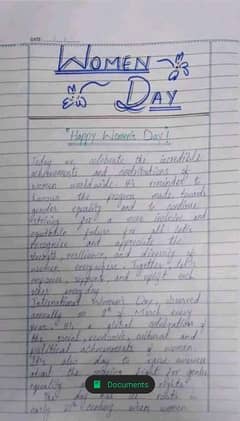 DATE
WOMEN
DAY
"Happy Women's Day!
Today we celebrate the incredible
achievements and contributions of
women worldwide. It's reminder to
honour the progress made towards
gender equality and to continue
striving for a more inclusive and
equitable future for all. Let's
recognize and appreciate the
strength, resilience, and diversity of
women everywhere. Together, let's
empower, support, and uplift each
other everyday.
International Women's Day, observed
annually on 8th of March every
year. It's a global celebration of
the social, economic, cultural and
political achievements of women.
It's also day to
about the ongoing fight for gender
equality rights.
The day has its roots in
early 20th century when women
Documents